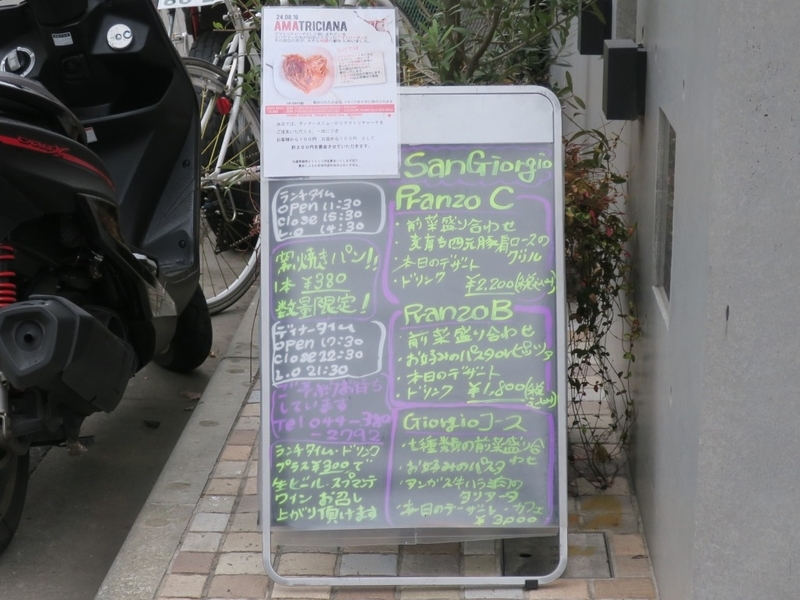 24.08.16
AMATRICIANA
SanGiorgio
ランチタイム
open 11:30
close 15:30
L.O 14:30
窯焼きパン!!
1本 ¥380
数量限定!
ディナータイム
open 17:30
close 22:30
L.O 21:30
ご予約お待ち
しています
Tel 044-380
-2792
ランチタイム・ドリンク
プラス¥300で
生ビール・スプマンテ
ワイン お召し
上がり頂けます
Pranzo C
・前菜盛り合わせ
・麦育ち四元豚肩ロースの
グリル
・本日のデザート
・ドリンク ¥2,200(税込)
Pranzo B
・前菜盛り合わせ
・お好みのパスタorピッツァ
・本日のデザート
・ドリンク ¥1,800(税込)
Giorgioコース
・七種類の前菜盛り合
わせ
・お好みのパスタ
・アンガス牛ハラミ肉の
タリアータ
・本日のデザート・カフェ
¥3,000